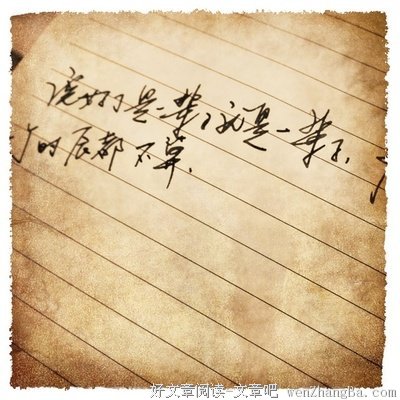 说好了是一辈子就是一辈子,
个时辰都不算.
好文章阅读-文章吧 wenZhangBa.com